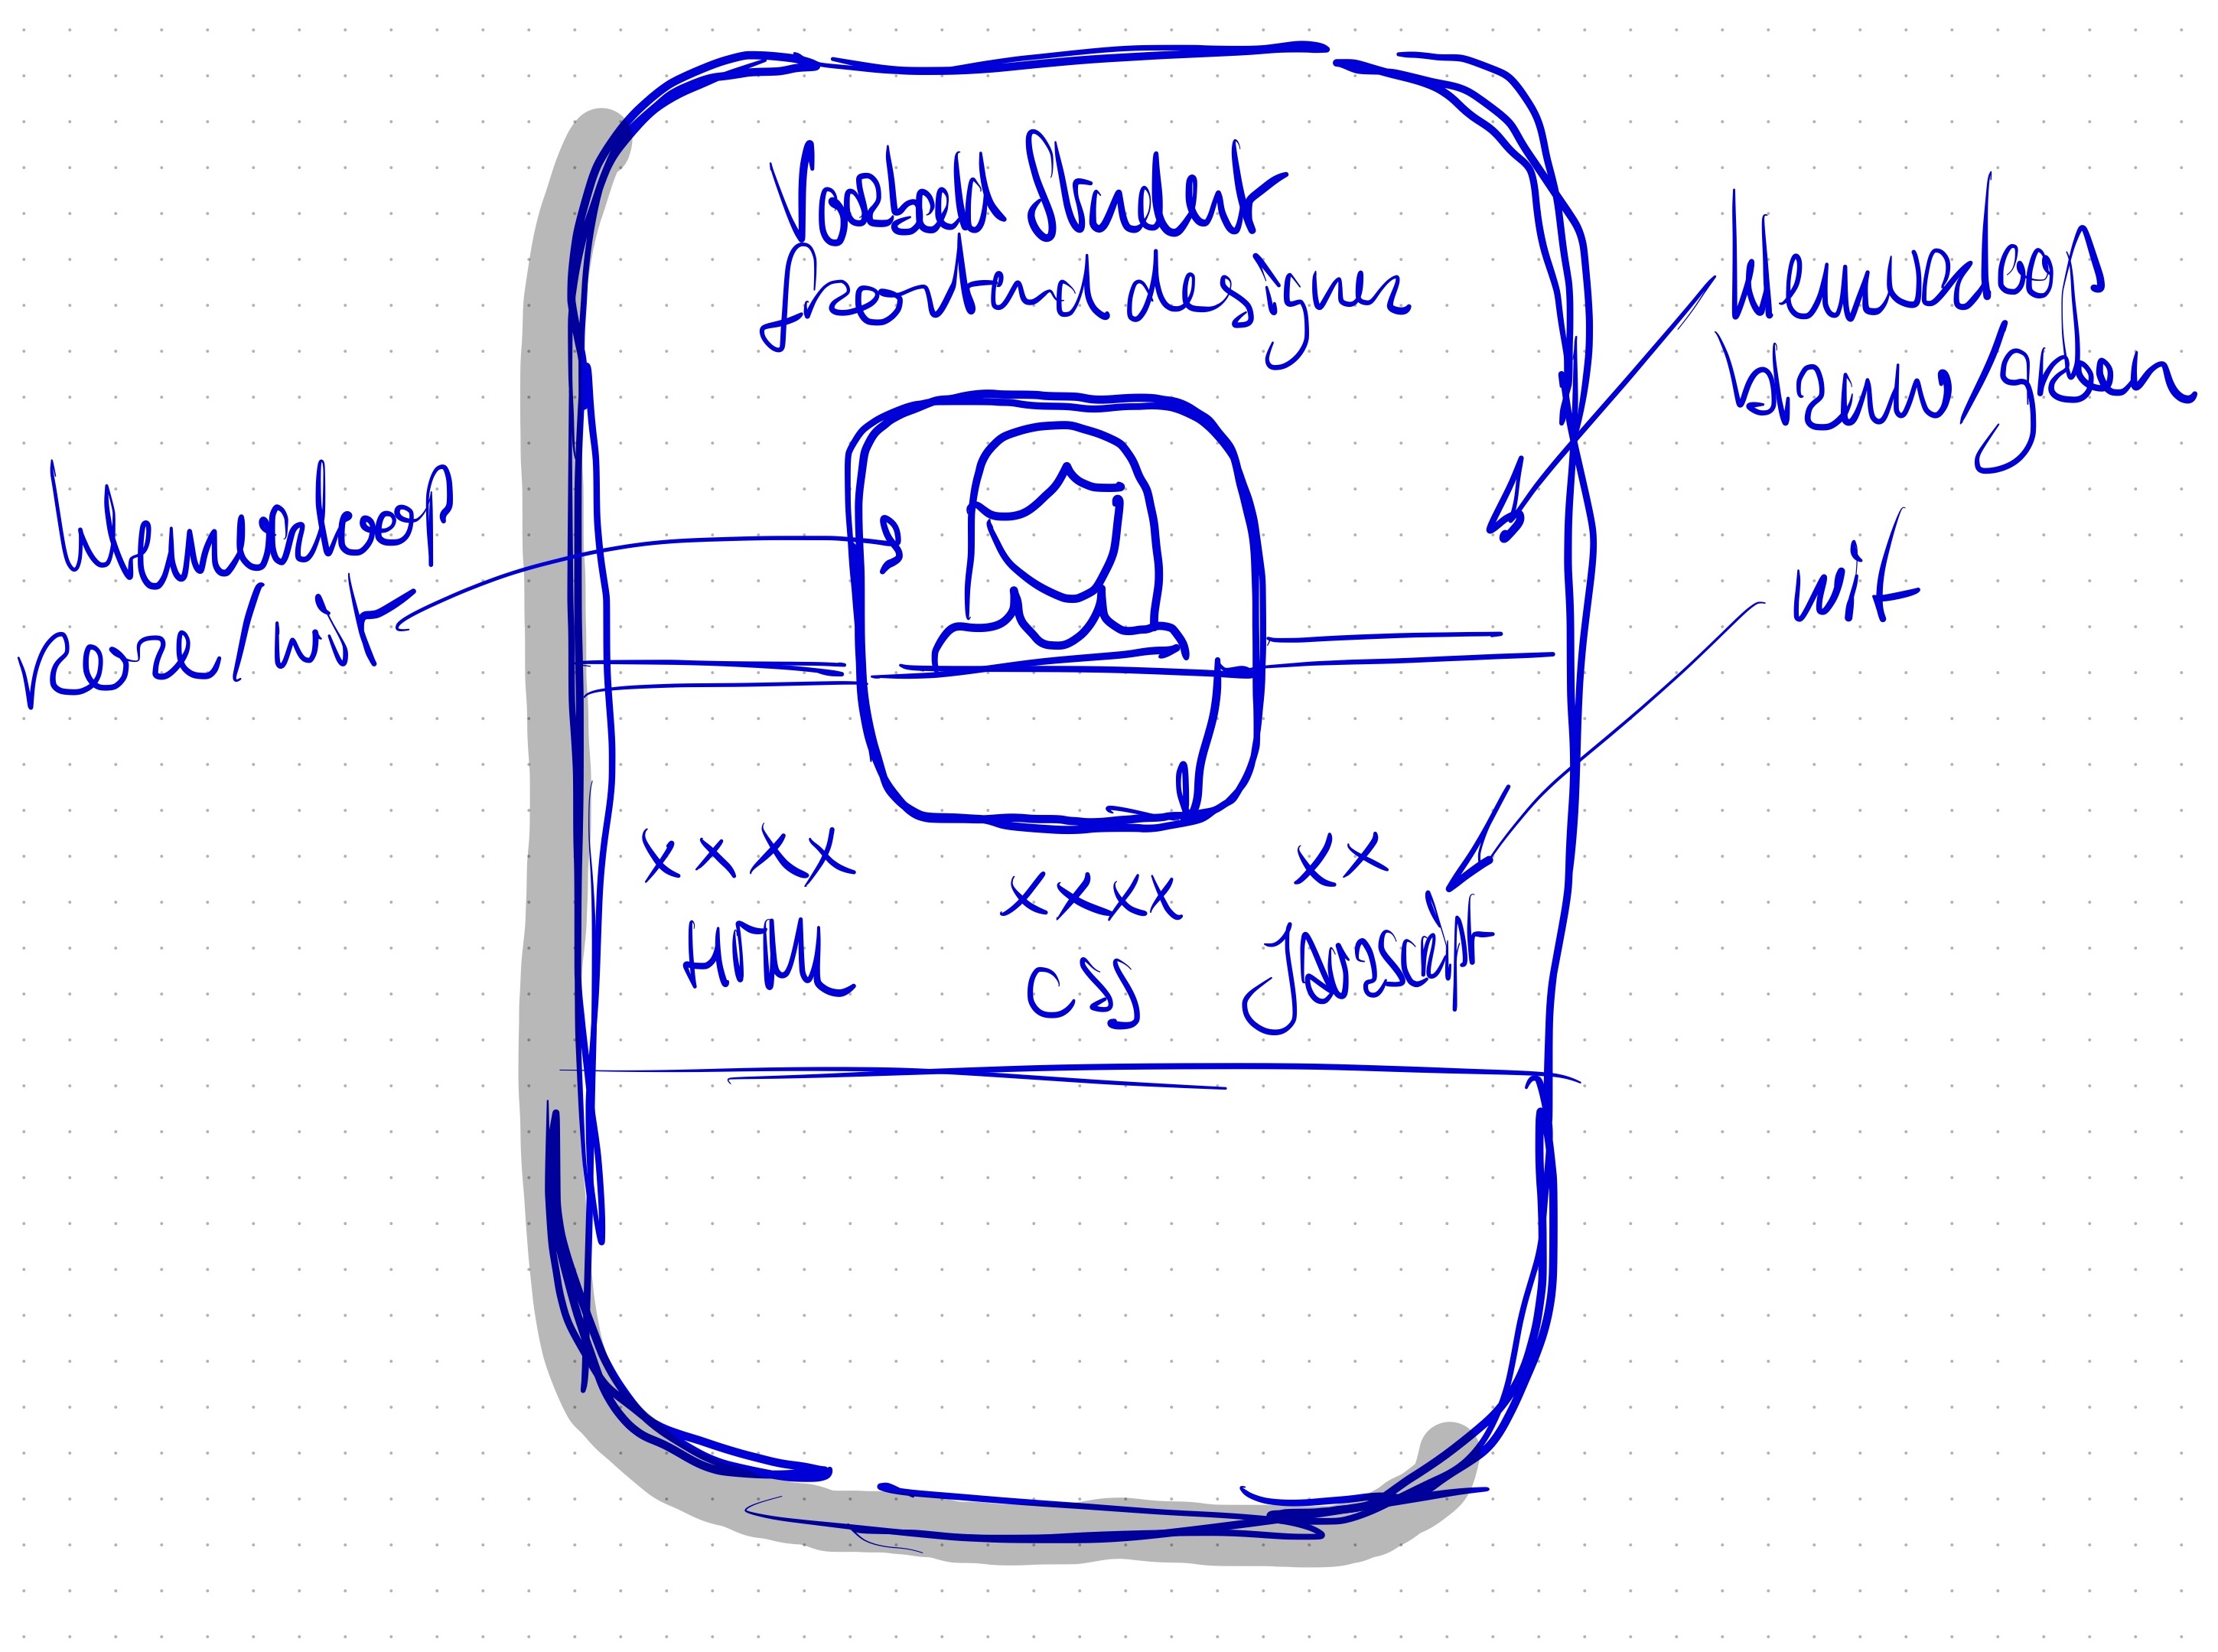 Student
frontend designer
Kleurverloop
blauw/groen
Kleurverloop
roze/wit
wit
xxxx
HTML
xxxx
CSS
xx
Javascript